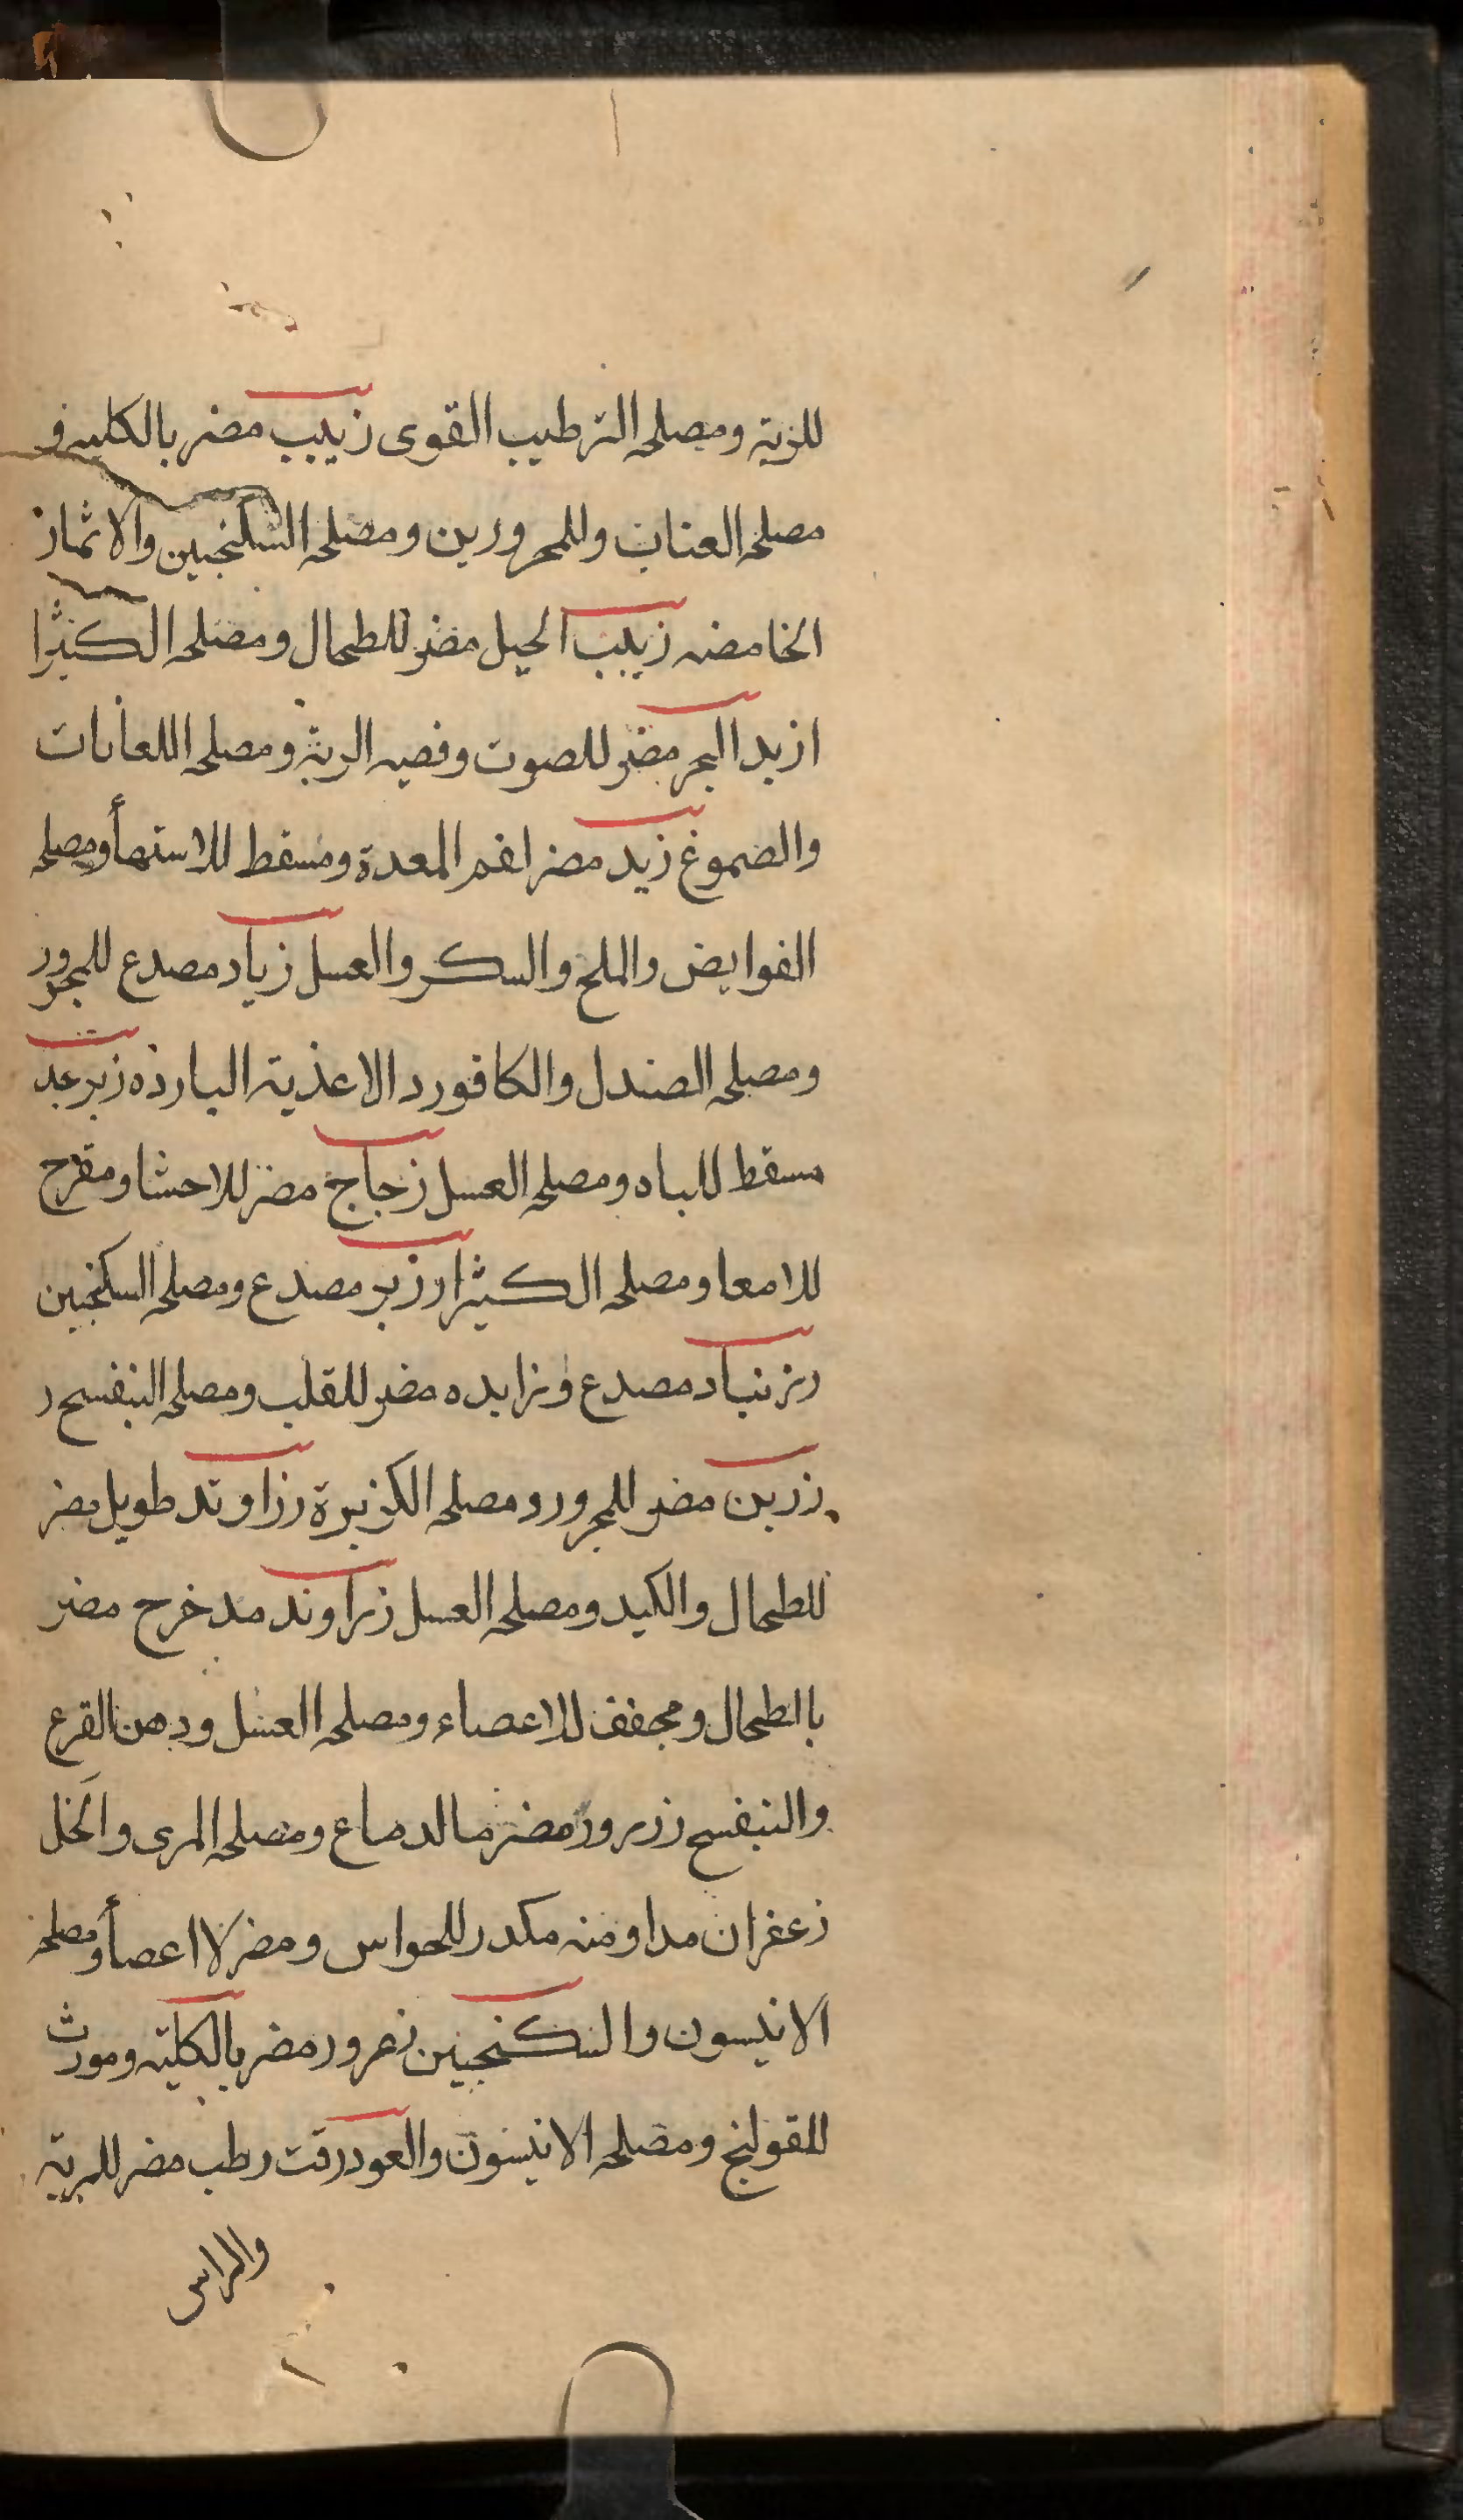 للريه ومصلحه الترطيب القوى زبيب مضر بالكليه و
مصلحه العناب وللمحرورين ومصلحه السكنجبين والاثمار
الحامضه زبيب الجبل مضر للطحال ومصلحه الكثيرا
ازبد البحر مضر للصوت وقصبه الرية ومصلحه اللعابات
والصموغ زبد مضر لفم المعدة ومسقط للاستهاأ ومصلحه
القوابض والملح والسكر والعسل زباد مصدع للمحرور
ومصلحه الصندل والكافور د الاغذية الباردة زبرجد
مسقط للباه ومصلحه العسل زجاج مضر للاحشا ومقرح
للامعا ومصلحه الكثيرا رزبر مصدع ومصلحه السكنجبين
زرنباد مصدع وزايده مضر للقلب ومصلحه البنفسج ر
زرين مضر للمحرور ومصلحه الكزبرة رزاوند طويل مضر
للطحال والكبد ومصلحه العسل زراوند مدخرح مضر
بالطحال ومجفف للاعصاء ومصلحه العسل ودهن القرع
والبنفسج زرزور مضر بالدماغ ومصلحه المرى والخل
زعفران مداومنه مكدر للحواس ومضر لااعصاأ ومصلحه
الانيسون والسكنجبين زعرور مضر بالكلية ومورث
للقولنج ومصلحه الانيسون والعود زفت رطب مضر للرية
والراس